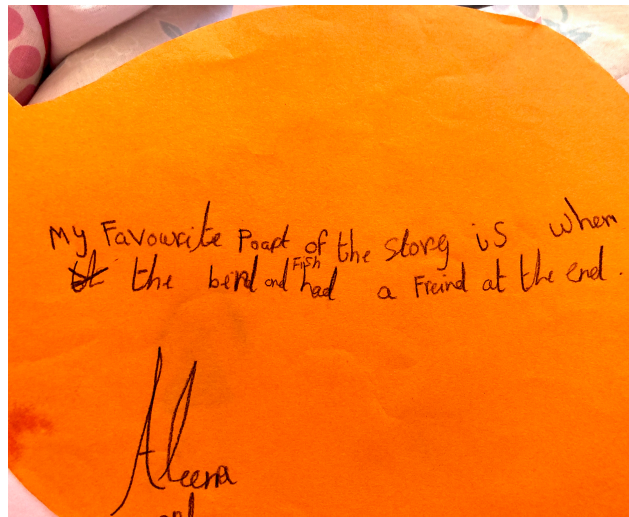 My Favourite Poart of the story is when
the berd and Fish had a Freind at the end.
Aleena
and